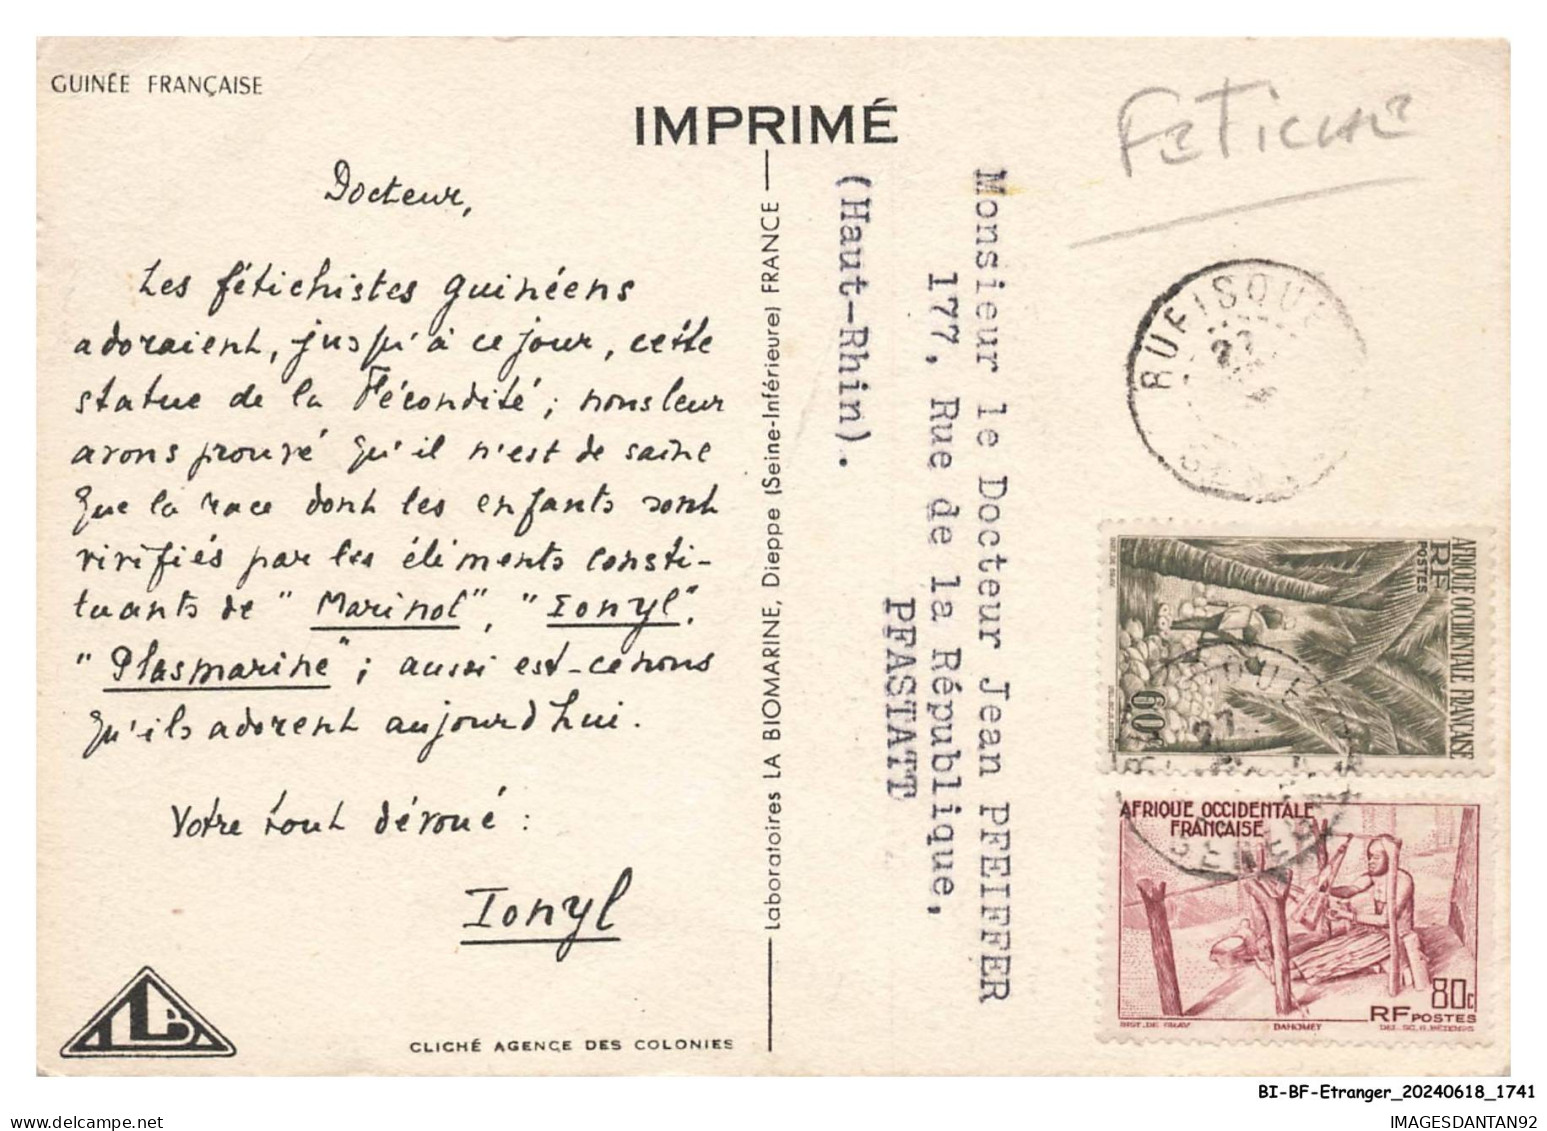 GUINÉE FRANÇAISE
IMPRIMÉ
FETICHE
Docteur,
Les fétichistes guinéens
adoraient, jusqu'à ce jour, cette
statue de la Fécondité ; nous leur
avons prouvé qu'il n'est de saine
que la race dont les enfants sont
vivifiés par les éléments consti-
tuants de "Marinol", "Ionyl",
"Plasmarine" ; aussi est-ce nous
qu'ils adorent aujourd'hui.
Votre tout dévoué :
Ionyl
CLICHÉ AGENCE DES COLONIES
Laboratoires LA BIOMARINE, Dieppe (Seine-Inférieure) FRANCE
Monsieur le Docteur Jean PFEIFFER
177, Rue de la République,
PFASTATT
(Haut-Rhin).
RUFISQUE
27
AFRIQUE OCCIDENTALE FRANÇAISE
RF
POSTES
60c
RUFISQUE
27
SENEGAL
AFRIQUE OCCIDENTALE
FRANÇAISE
80c
RF POSTES
DAHOMEY
BI-BF-Etranger_20240618_1741
IMAGESDANTAN92